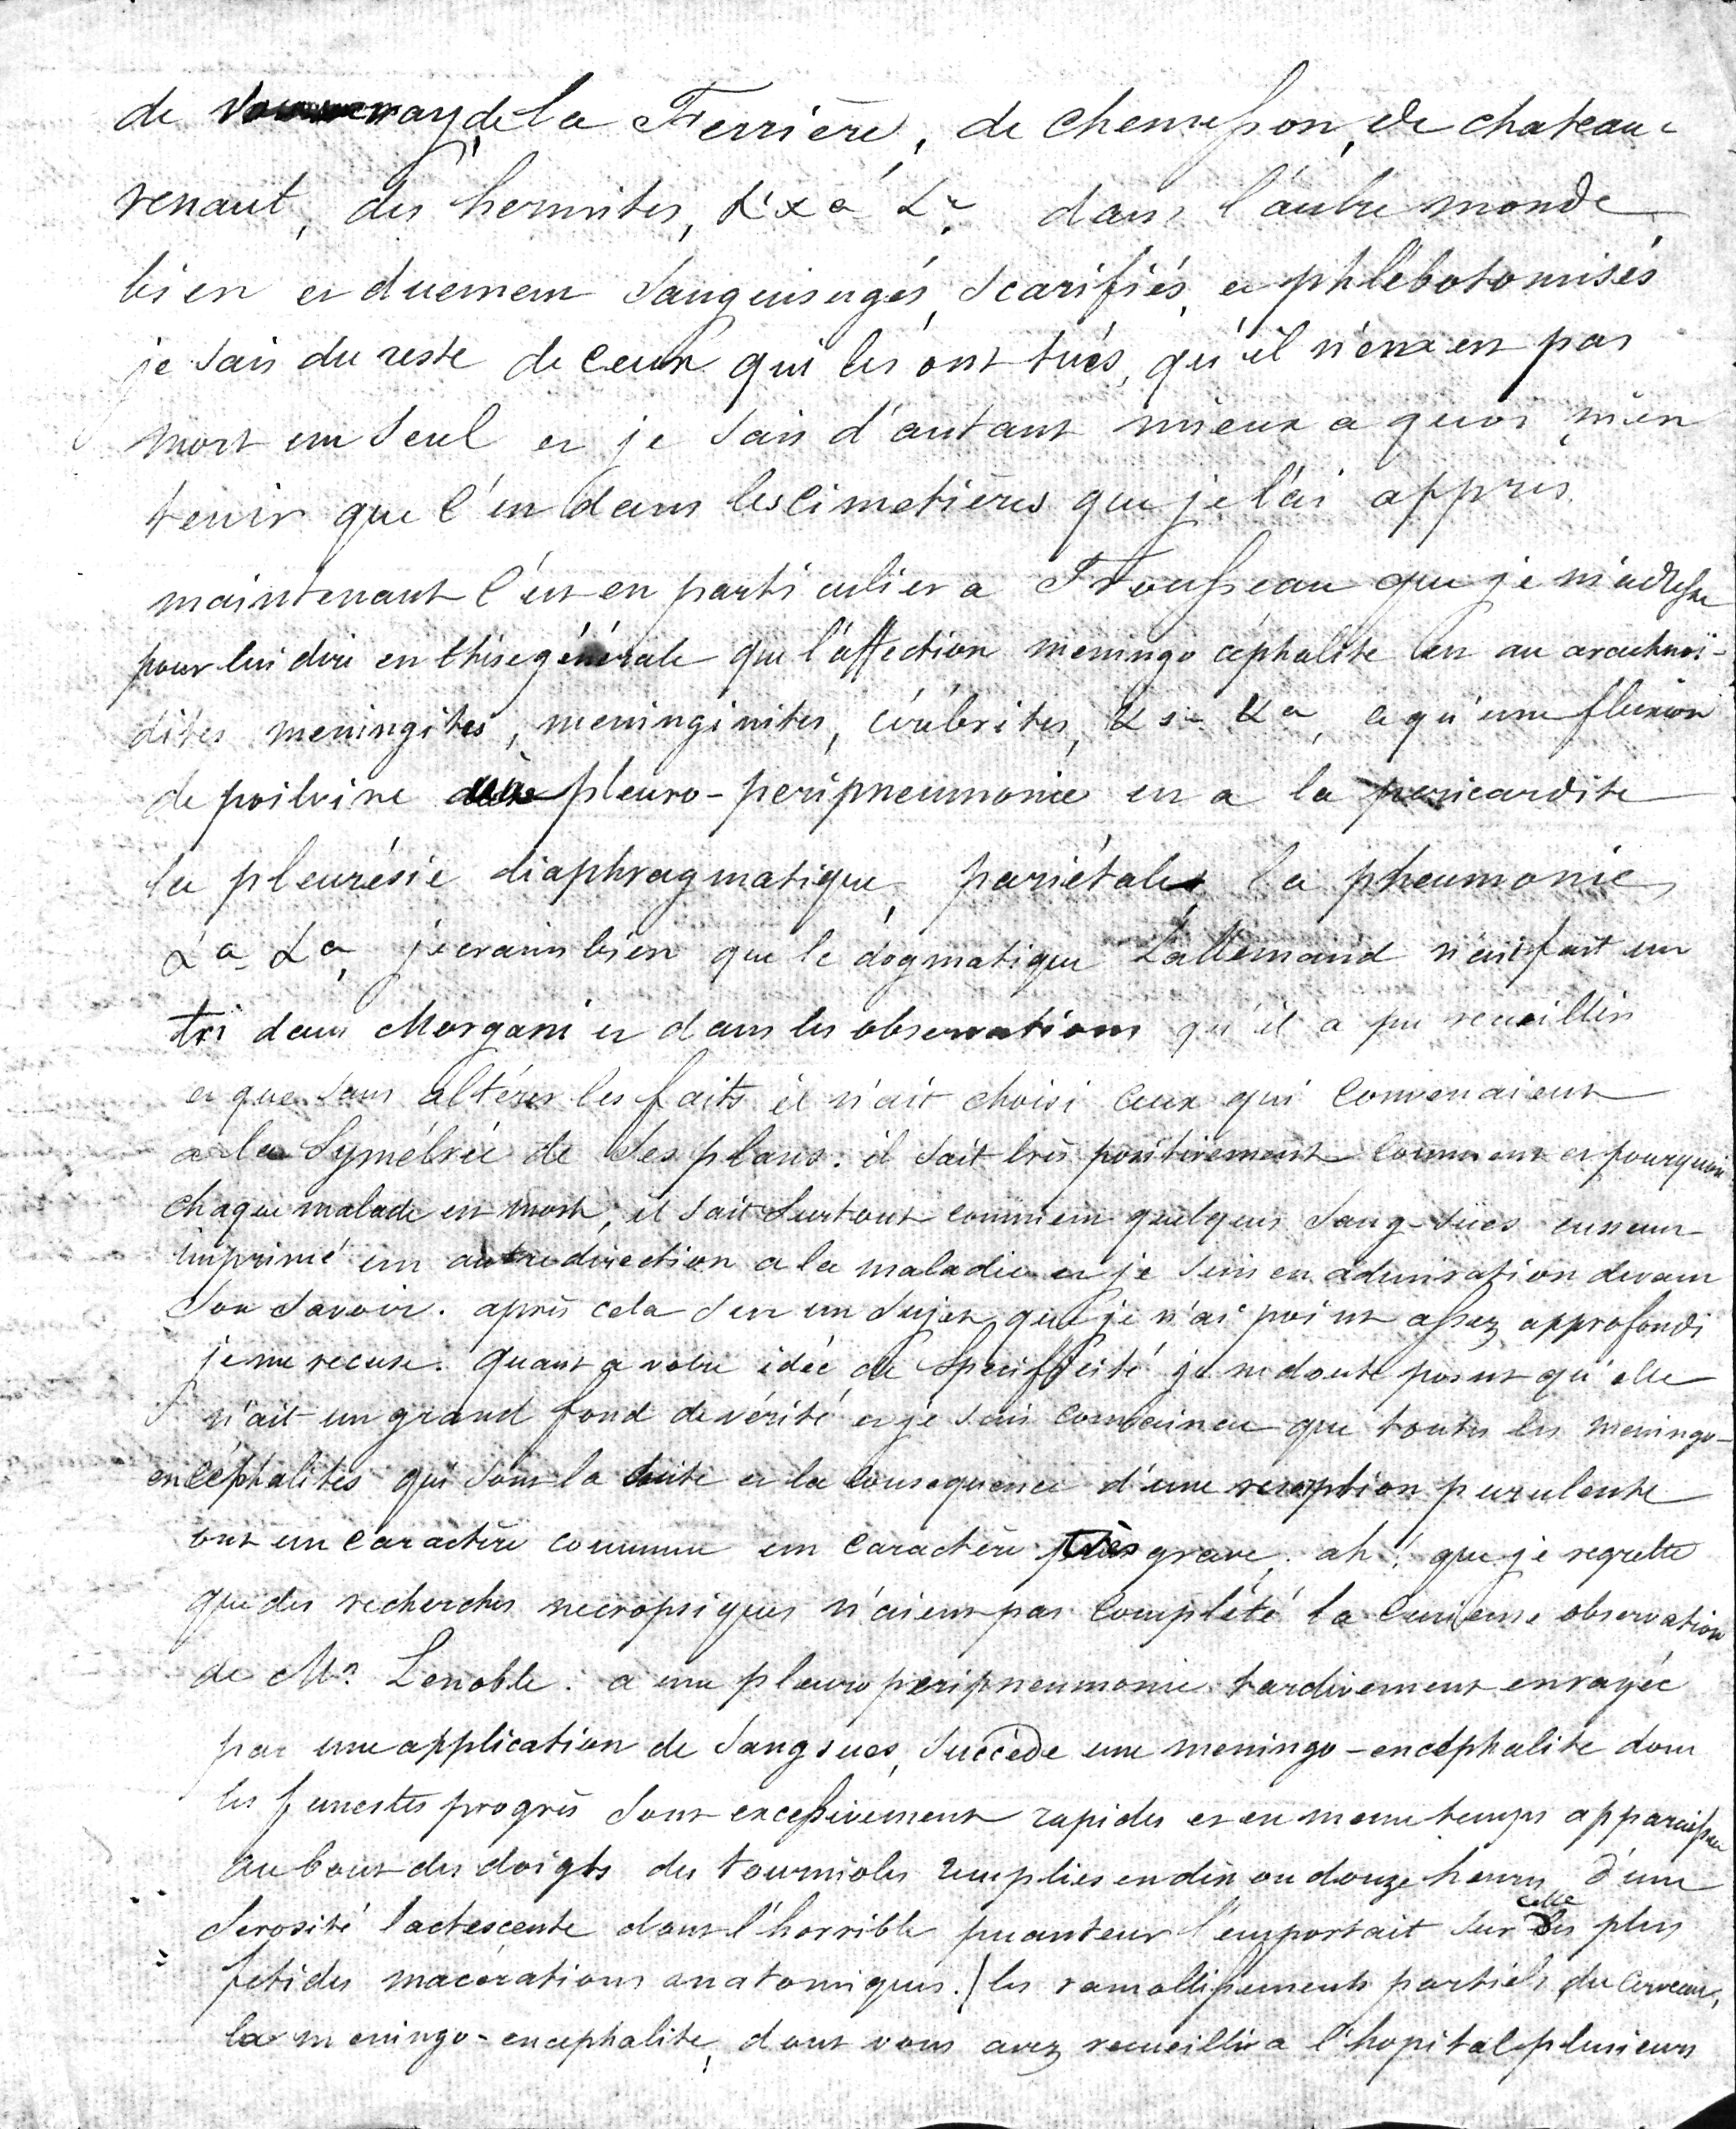 de Vouvray, de la Ferrière, de chemesson, de chateau-
renaut, des hermites, &xa &c. dans l'autre monde
bien et duement sanguisugés, scarifiés, et phlébotomisés
je sais du reste de ceux qui les ont tués, qu'il n'en est pas
mort un seul et je sais d'autant mieux a quoi m'en
tenir que c'est dans les cimetières que je l'ai appris.
maintenant c'est en particulier a Trousseau que je m'adresse
pour lui dire en thèse générale que l'affection meningo céphalite est au arachnoï-
dites meningites, meninginites, cérébrites, &a &a, ce qu'une fluxion
de poitrine pleuro-peripneumonie est a la pericardite
la pleurésie diaphragmatique, pariétale, la pneumonie,
&a &a, je crains bien que le dogmatique Lallemand n'ait fait un
tri dans Morgani et dans les observations qu'il a pu recueillir
et que sans altérer les faits il n'ait choisi ceux qui convenaient
a la symétrie de ses plans. il sait très positivement comment et pourquoi
chaque malade est mort, il sait surtout comment quelques sang-sües eussent
imprimé un autre direction a la maladie et je suis en admiration devant
son savoir. après cela sur un sujet que je n'ai point assez approfondi
je me recuse. quant a votre idée de spécifficité je ne doute point qu'elle
n'ait un grand fond de vérité et je suis convaincu que toutes les meningo-
encéphalites qui sont la suite et la consequence d'une resorption purulente
ont un caractère commun un caractère très grave. ah! que je regrette
que des recherches necropsiques n'aient pas complété la curieuse observation
de Mr. Lenoble. a une pleuro peripneumonie tardivement enrayée
par une application de sangsues, succède une meningo-encéphalite dont
les funestes progrès sont excessivement rapides et en meme temps apparaissent
au bout des doigts des tournioles remplies en dix ou douze heures d'une
serosité lactescente dont l'horrible puanteur l'emportait sur celle des plus
fetides macérations anatomiques. / les ramollissements partiels du cerveau,
la meningo-encephalite, dont vous avez recueilli a l'hopital plusieurs